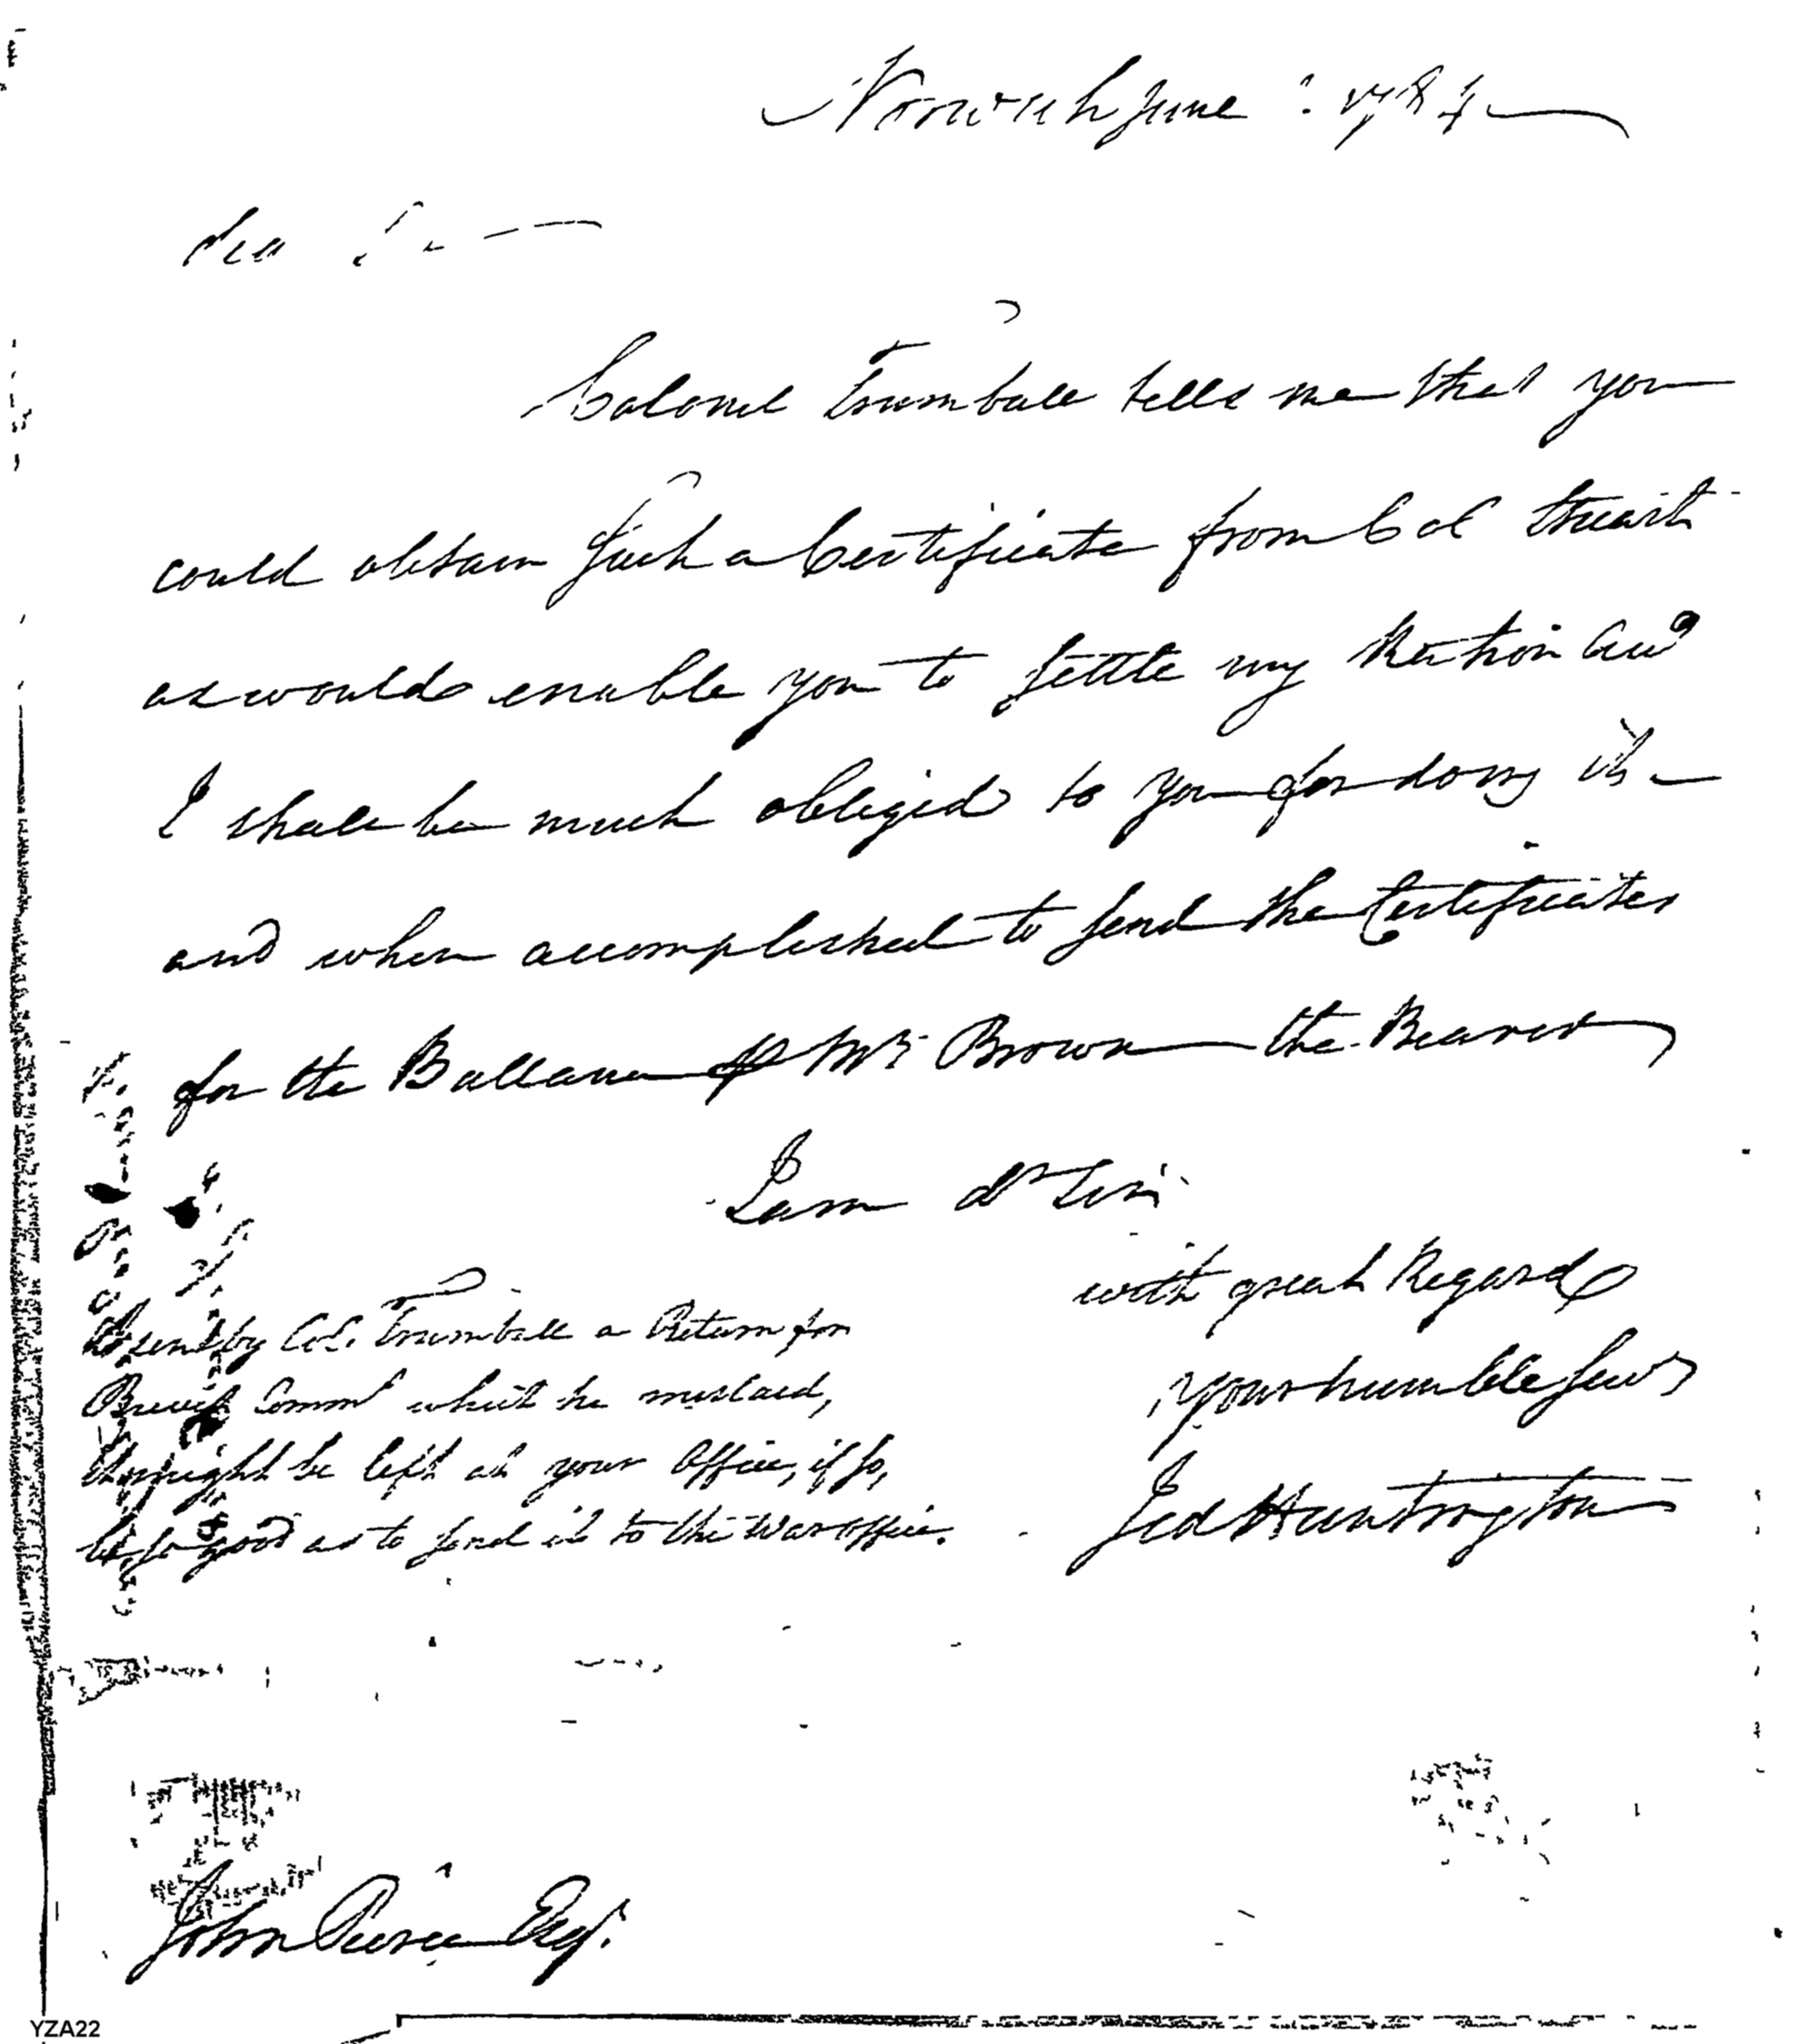 Norwich June 1784
Dear
Colonel Trumbull tells me that you
could obtain such a Certificate from Col Stuart
as would enable you to settle my Ration Acco
I shall be much obliged to you for doing it
and when accomplished to send the Certificates
for the Ballance Mr Brown the Bearer
I am dr Sir
with great Regard
your humble Servt
Jed Huntington
I sent by Col. Trumbull a Return for
Brevet Commn which he mislaid,
It might be left at your Office, if so,
be so good as to send it to the War Office.
John Pierce Esqr.
YZA22